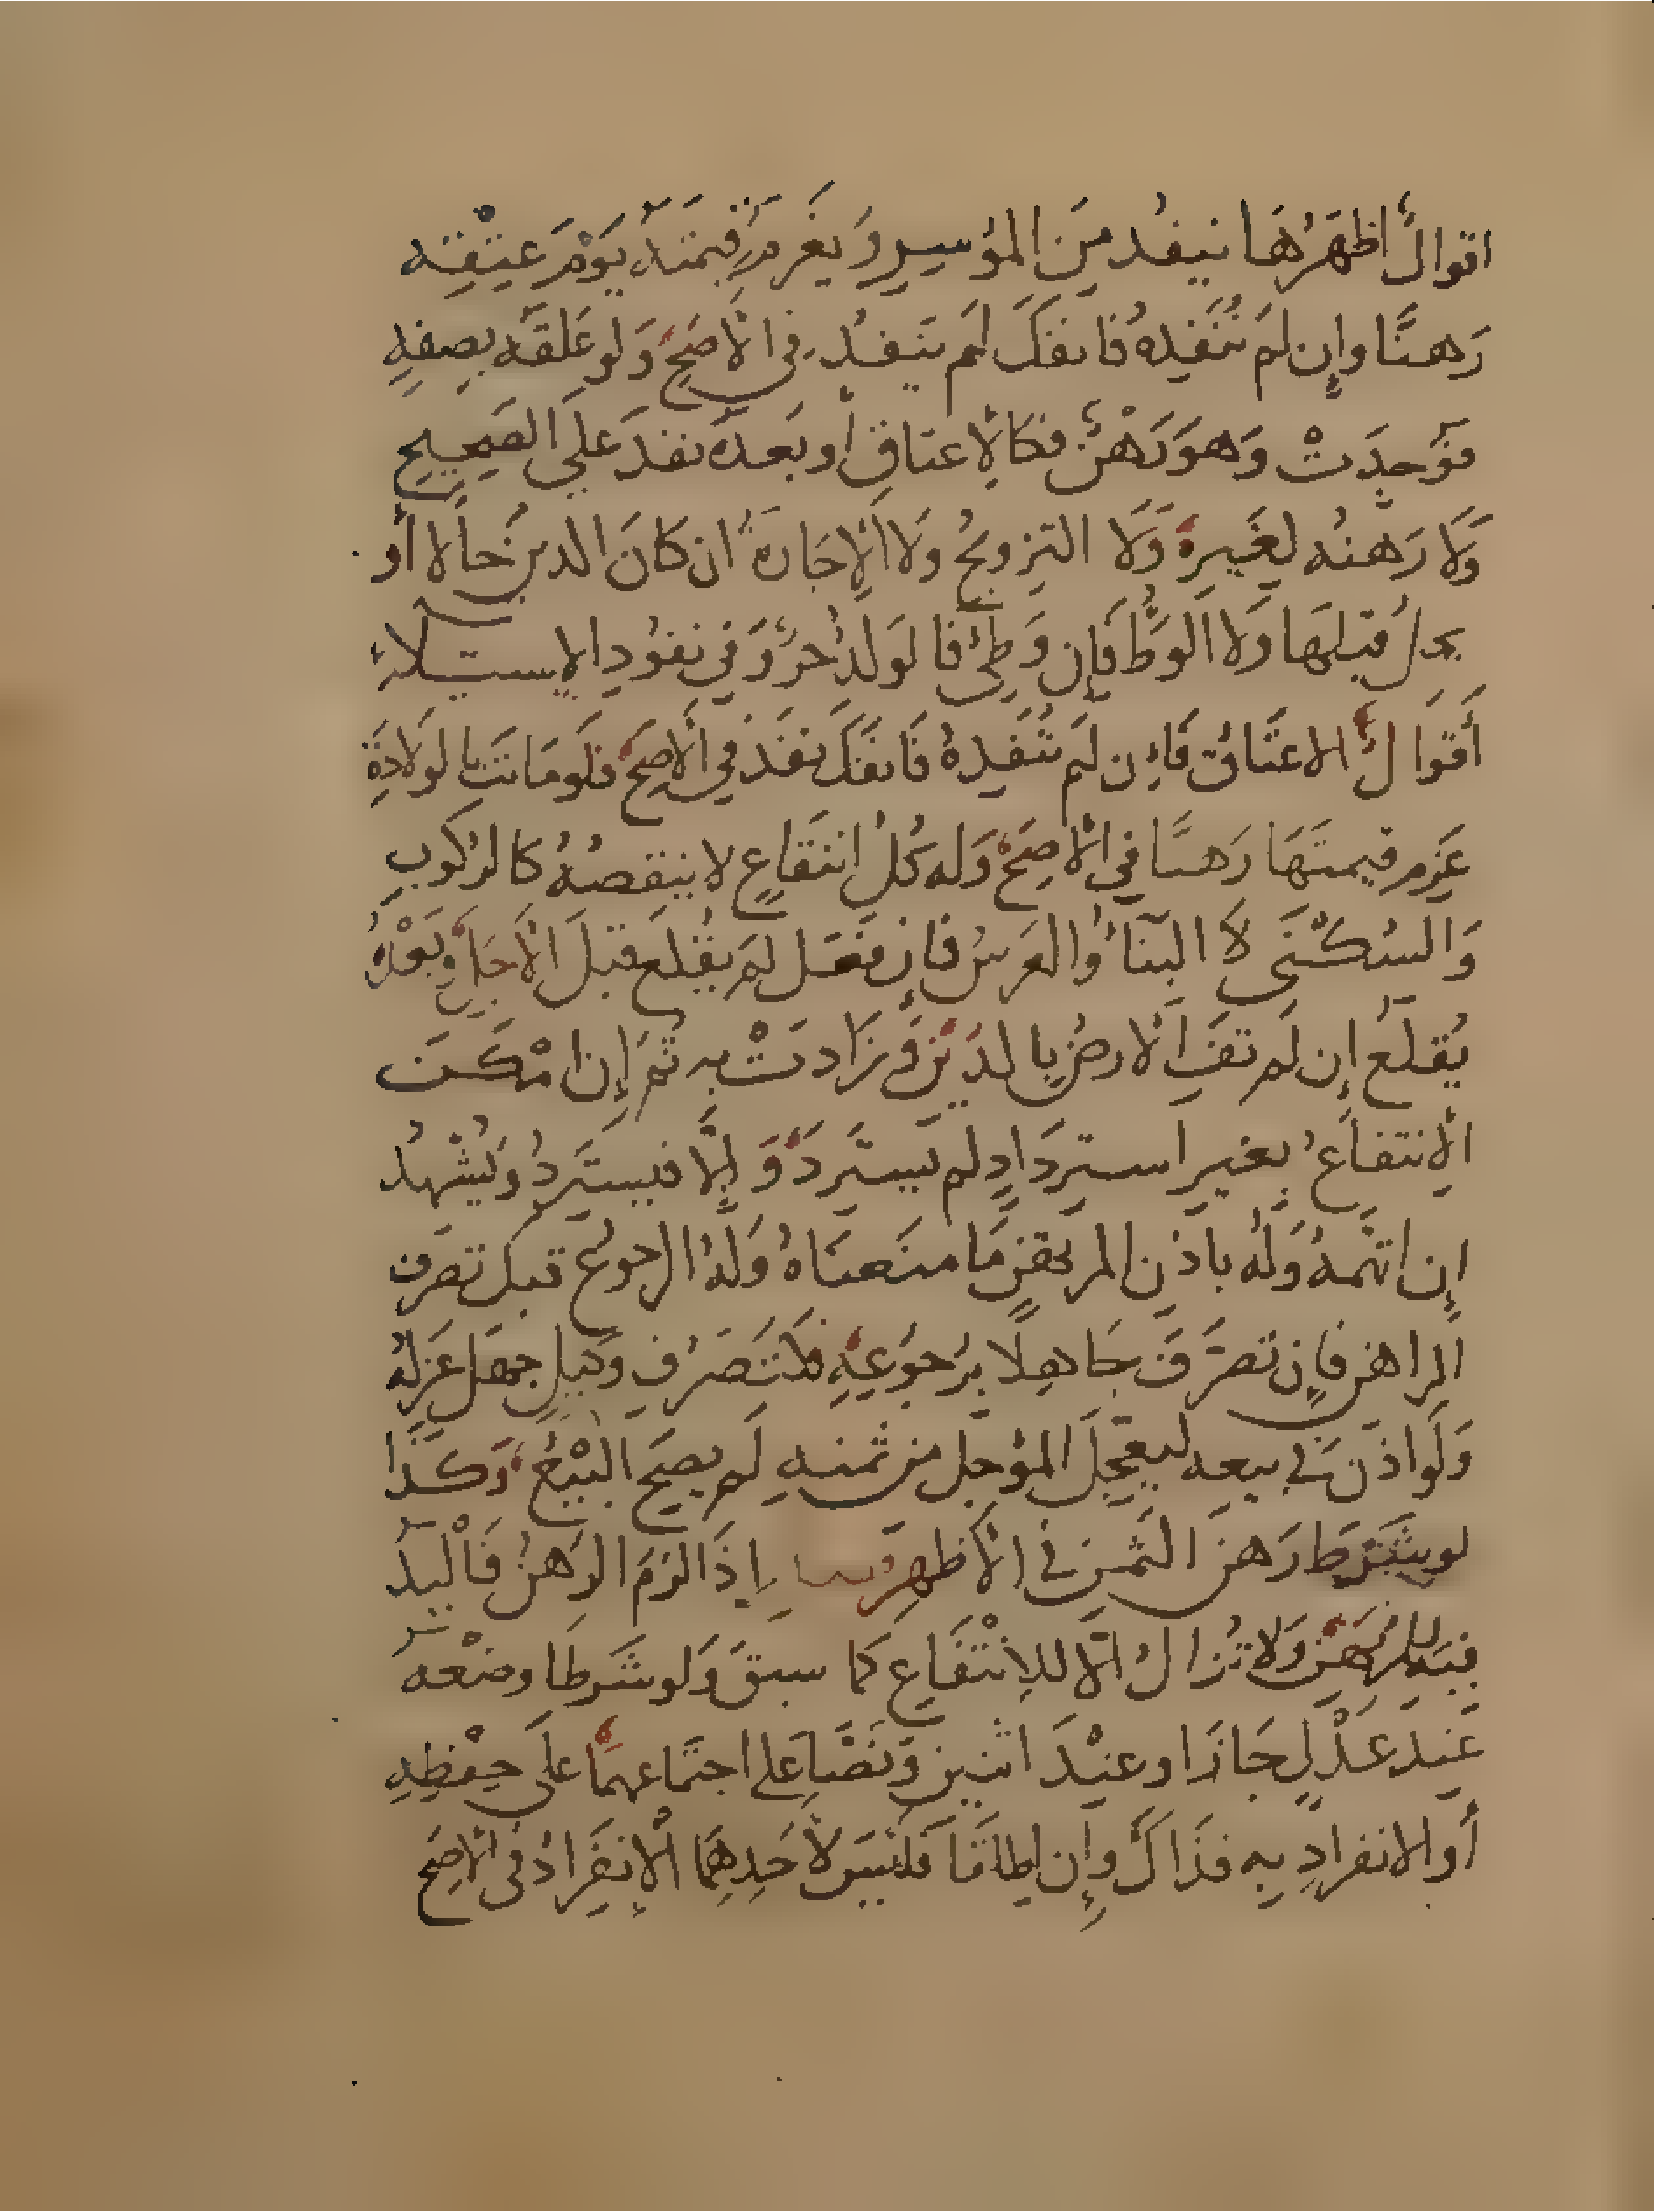 اقوالٌ اظهرُها ينفُد مِنَ المؤسِرِ وَيغرَمُ قيمتهُ يَوْمَ عِتْقِه
رَهنًا وإِن لمَ نُنَفِدهُ فانفكَ لمَ يَنفُد في الأَصَحِ وَلو عَلقَه بِصِفهٍ
فوُجِدَتْ وَهوَ رَهْنٌ فكالإعتاقِ أو بَعدَهُ نفدَ علي الصَحِيحِ
وَلَا رَهنُه لِغَيرِهِ وَلَا التزويجُ وَلا الإجَارةُ ان كانَ الدين حَالا أو
يحلُ قبلهَا وَلا الوَطُ فإِن وَطِئَ فالوَلدُ حرٌ وَفي نفوُدِ الإستيلادِ
أَقوَالُ الاعتَاقِ فَإِن لَم نُنَفِدهُ فَانفَكَ نفَذَ في الأَصَحِ فلَو مَاتَت بالوِلادَةِ
غَرِم قيمتَهَا رَهنًا في الأصَحِ وَله كُلُ انتَفَاعٍ لا ينقصُهُ كالرُكوبِ
وَالسُكْنَي لَا البنَاءُ والغَرسُ فَإِن فعَل لمَ يُقلَع قبلَ الأَجَلِ وَبَعْدَهُ
يُقلَعُ إِن لَم تفِ الأَرضُ بِالدَينِ وَزَادتْ بِه ثُمَ إِن امْكَنَ
الإنتفاعُ بِغيرِ استِردَادٍ لم يَستَرِدَ وَإِلَّا فيستَرِدُ وَيُشْهِدُ
إِن اتهَمهُ وَلَهُ باذنِ المرتَهِنِ مَا منَعنَاهُ وَلَهُ الرجوعُ قبلَ تصَرفِ
الراهنِ فإِن تصَرَّفَ جَاهِلًا بِرُجوُعِهِ فكتَصَرُفِ وَكيلٍ جهلَ عَزلَهُ
وَلَو اذَنَ في بيعِه ليعَجِلَ المؤجَل من ثمنهِ لَم يصِحَ البَيْعُ وَكذَا
لو شَرَطَ رَهنَ الثمَنِ في الأظهرِ فصل إِذَا لزمَ الرَهنُ فَاليدُ
فيهِ للمُرتَهِنِ وَلا تُزالُ الَّا للاِنْتفَاعِ كما سبقَ وَلو شَرطا وضْعه
عِندَ عَدْلٍ جَازَ او عندَ اثنينِ وَنَصَّا علي اجتَماعهِمَا علَي حِفظِهِ
أَو الانفرادِ بِه فذَاكَ وإِن اطلقَا فليسَ لأَحَدِهِمَا الإنفِرَادُ في الأصَحِ